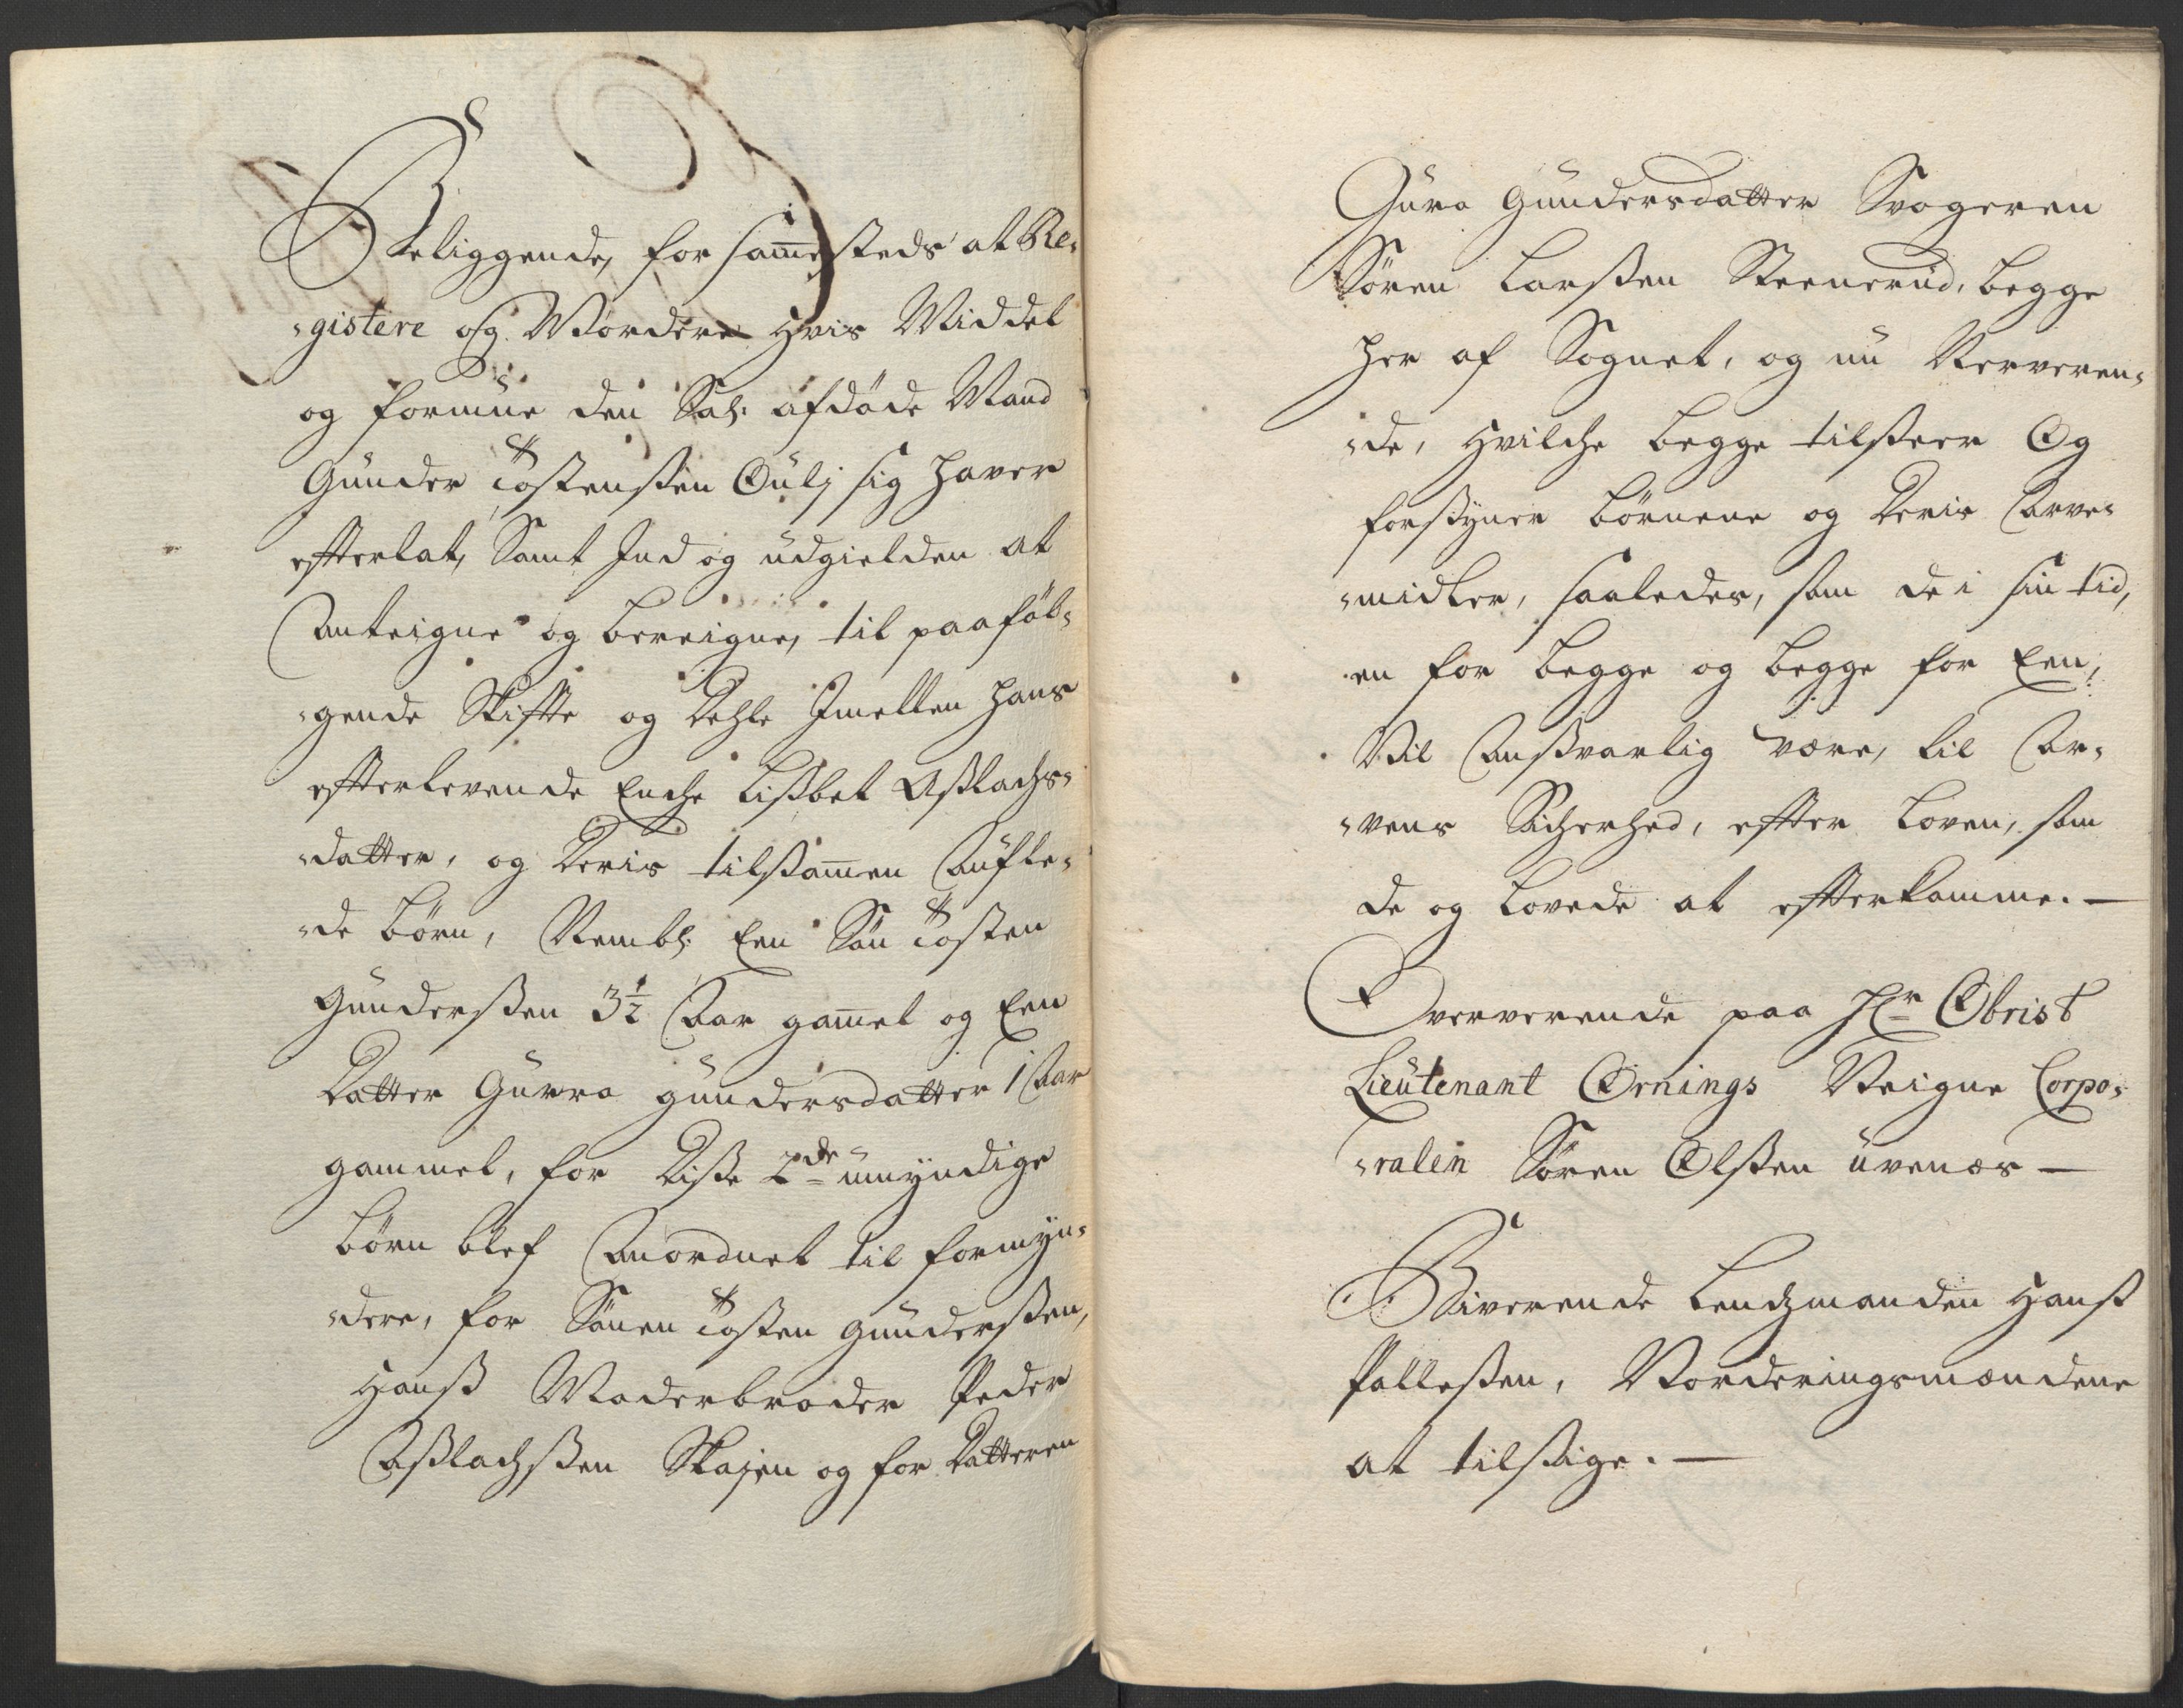 Beliggende, for sam̄esteds at Re-
-gistere og Vordere hvis Middel
og formue den Sal: afdøde Mand
Gunder Tostensßen Gulj sig haver
efterlat, Samt Ind og udgielden at
Anteigne og bereigne, til paaføl-
-gende Skifte og Dehle Imellem hans
efterlevende Enche Lisßbet Aßlachs-
-datter, og Deris tilßam̄en Aufle-
-de børn, Nembl: Een Søn Tosten
Gundersßen 3½ Aar gam̄el og Een
Datter Gurra Gundersdatter 1 Aar
gammel, for Diße 2de umyndige
børn blef Anordnet til formyn-
-dere, for Sønen Tosten Gundersßen,
Hanß Moderbroder Peder
Aßlachsßen Skajen og for Datteren
Gura Gundersdatter Svogeren
Søren Larsßen Steenerud, begge
her af Sognet, og nu Nerveren-
-de, hvilche begge tilsteer Og
forsyner børnene og Deris Arve-
-midler, saaledes, som de i sin tid,
en for begge og begge for Een,
Vil Ansvarlig være, til Ar-
-vens Sicherhed, efter Loven, som
de og Lovede at efterkomme. —
Oververende paa Hr Obrist
Lieutenant Ørnings Veigne Corpo-
-ralen Søren Olsßen Uvenæs —
Biverende Lendsmanden Hanß
Palleßen, Vorderingsmændene
at tilsige. —